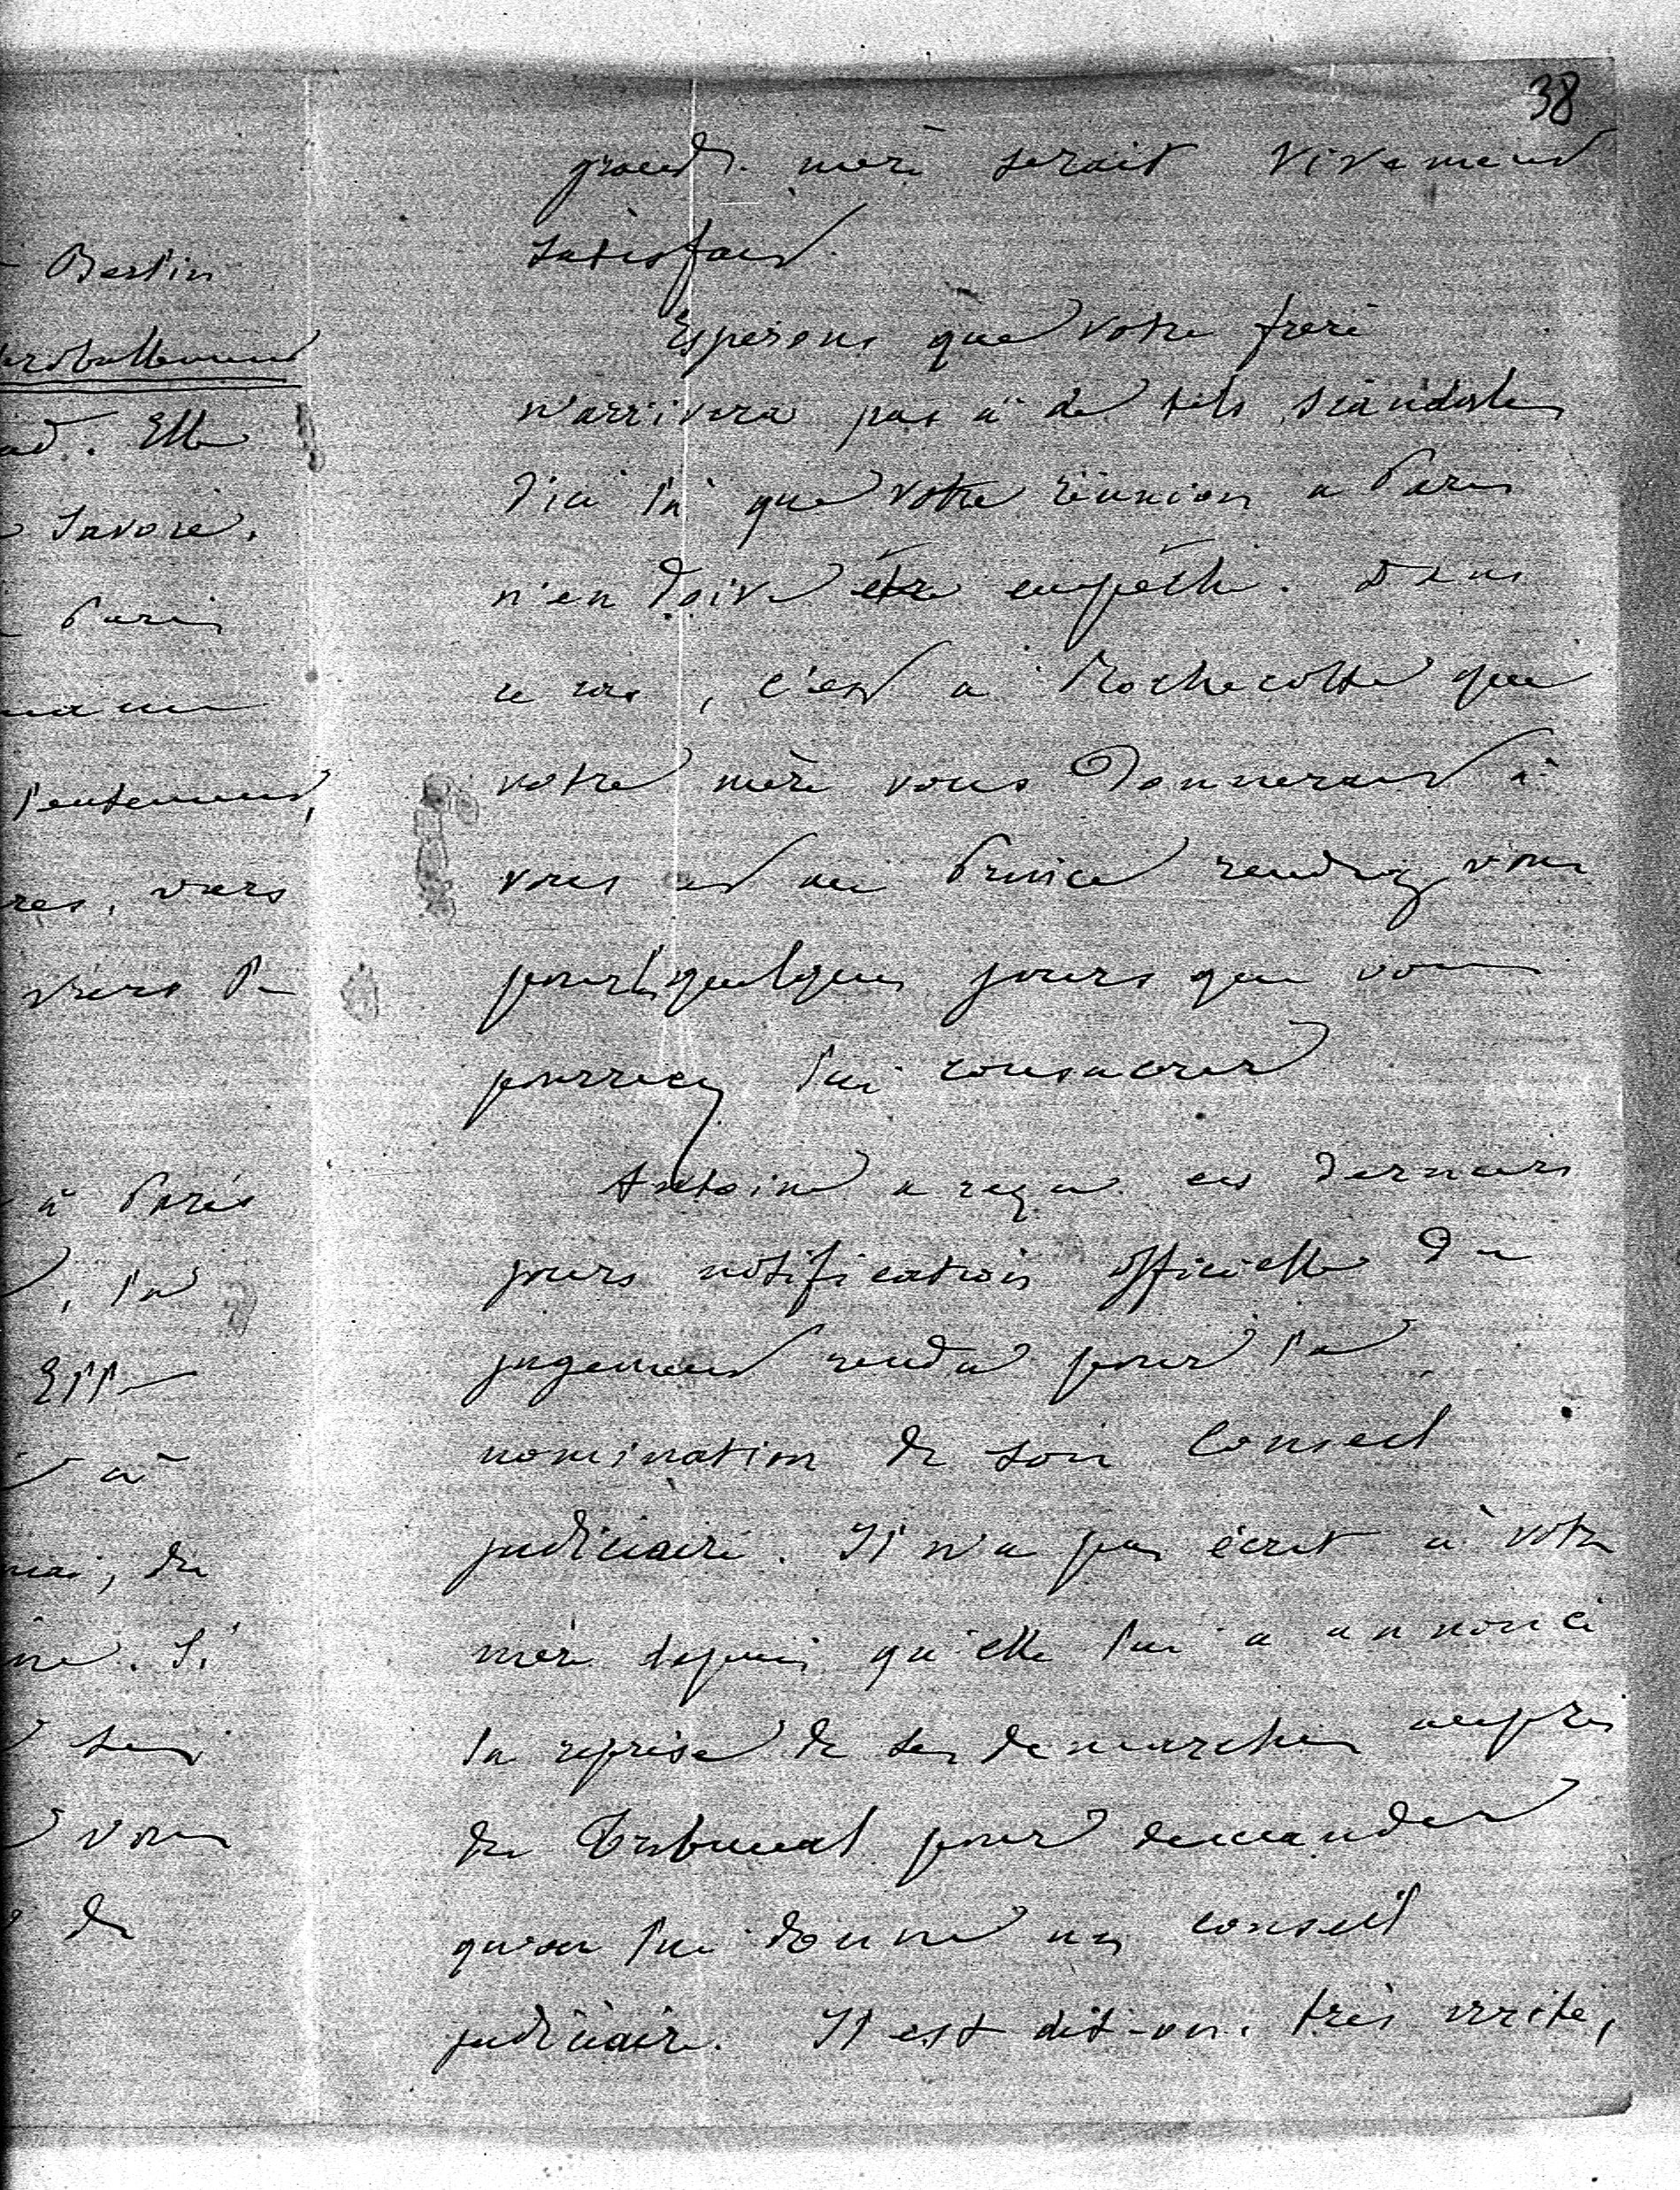 38
grand'mère serait vivement
satisfait.
Espérons que votre frère
n'arrivera pas à de tels scandales
d'ici là que votre réunion a Paris
n'en doive être empêché. Dans
ce cas, c'est a Rochecotte que
votre mère vous donnerait à
vous et au Prince rendez vous
pour les quelques jours que vous
pourriez lui consacrer
Antoine a reçu ces derniers
jours notification officielle du
jugement rendu pour la
nomination de son Conseil
judiciaire. Il n'a pas écrit à votre
mère depuis qu'elle lui a annoncé
la reprise de ses démarches auprès
du Tribunal pour demander
qu'on lui donne un conseil
judiciaire. Il est dit-on, très irrité,
Berlin
probablement
Elle
Savoie.
Paris
l'entement,
res, vers
vers le
à Paris
, la
Elle
à
, de
. Si
ses
vous
de